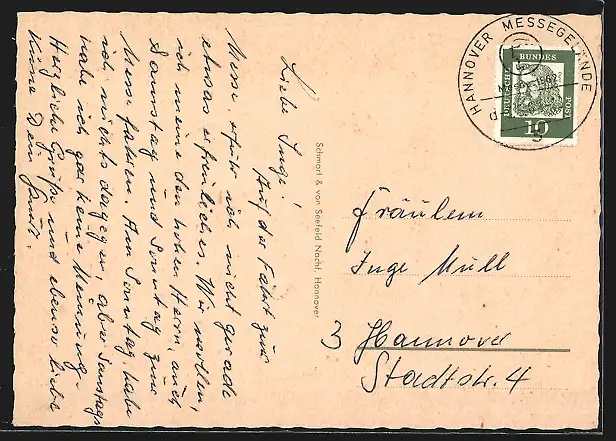 Liebe Inge!
Auf der Fahrt zur
Messe erfuhr ich nicht gerade
etwas erfreuliches. Wir wollen,
ich meine den hohen Herrn, auch
Sonnstag und Sonntag zur
Messe fahren. Am Sonntag habe
ich nichts dagegen, aber Samstags
habe ich gar keine Meinung.
Herzliche Grüße und ebenso liebe
Küsse Dein
Schmorl & von Seefeld Nachf. Hannover
HANNOVER MESSEGELÄNDE
d
DEUTSCHE BUNDES POST
10
Fräulein
Inge Mull
3 Hannover
Stadtstr. 4